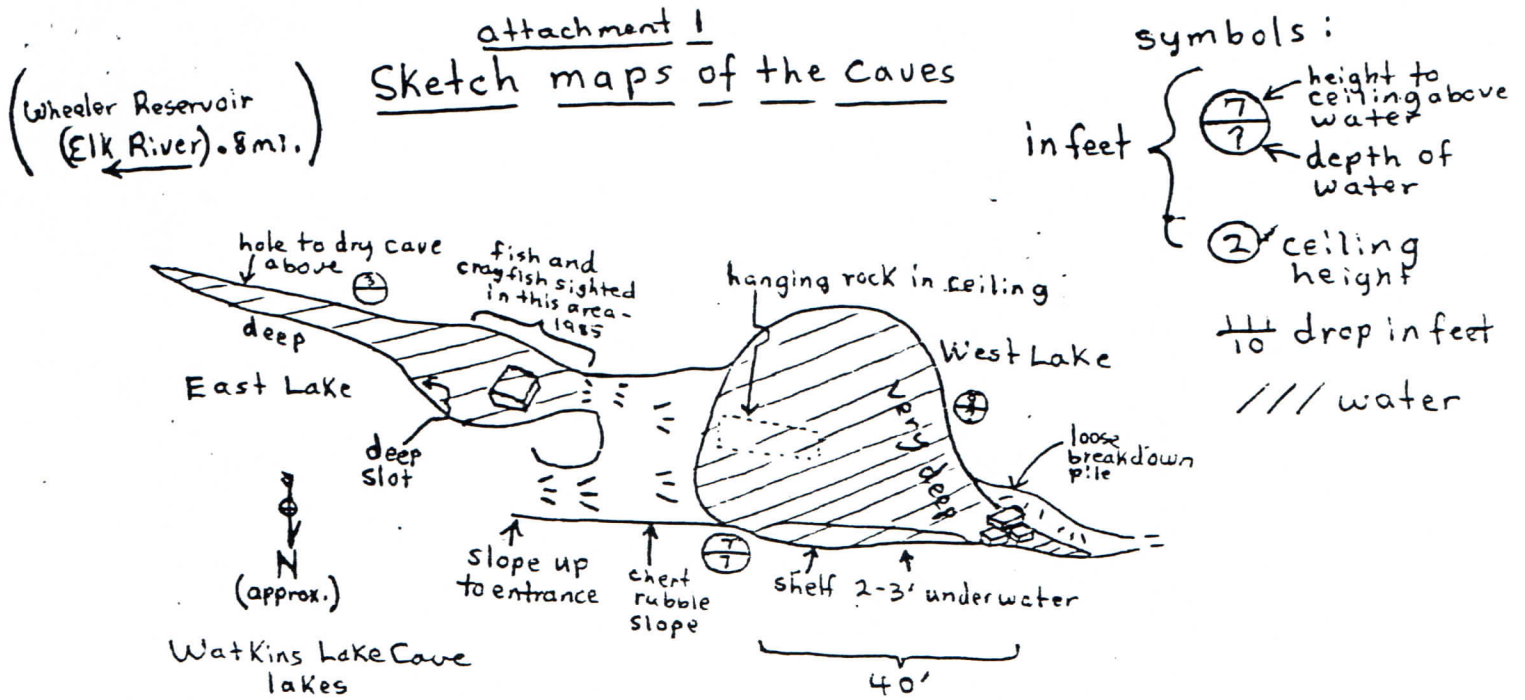 attachment 1
Sketch maps of the caves
(Wheeler Reservoir
(Elk River).8mi.)
symbols:
in feet
7
?
height to
ceiling above
water
depth of
water
2
ceiling
height
10
drop in feet
/// water
hole to dry cave
above
3
fish and
crayfish sighted
in this area-
1985
hanging rock in ceiling
deep
East Lake
deep
slot
West Lake
very deep
loose
breakdown
pile
N
(approx.)
slope up
to entrance
chert
rubble
slope
7
7
shelf 2-3' underwater
40'
Watkins Lake Cave
lakes